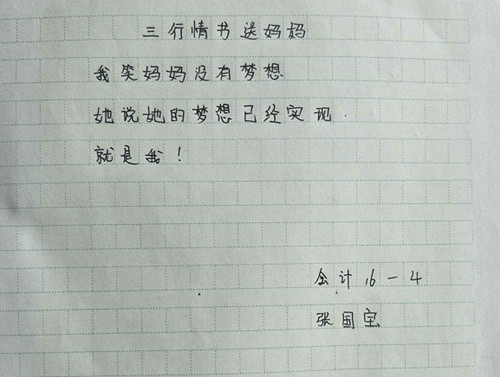 三行情书送妈妈
我笑妈妈没有梦想
她说她的梦想已经实现.
就是我!
会计16-4
张国宝